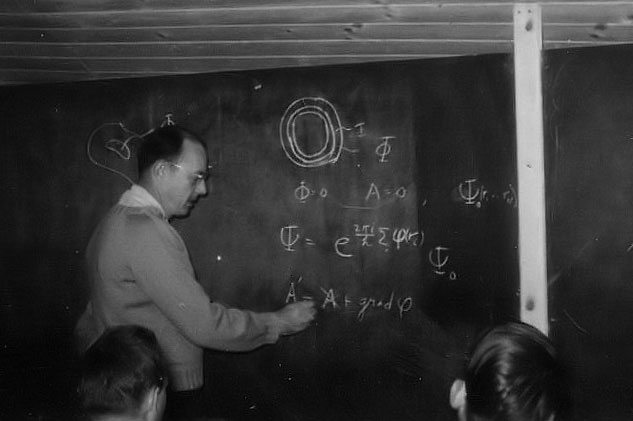 I
Φ
Φ=0 A=0, Ψ₀(r₁…r_N)
Ψ = e^{2πi/h Σ φ(r_i)} Ψ₀
A' = A + grad φ